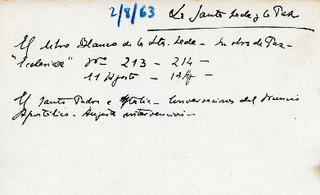 2/8/63 La Santa Sede y la Paz
El libro Blanco de la Sta. Sede - Su obra de Paz -
"Ecclesia" Nos 213 - 214 -
11 Agosto - 14
El Santo Padre e Italia - Conversaciones del Nuncio
Apostólico - Augusta intervención -